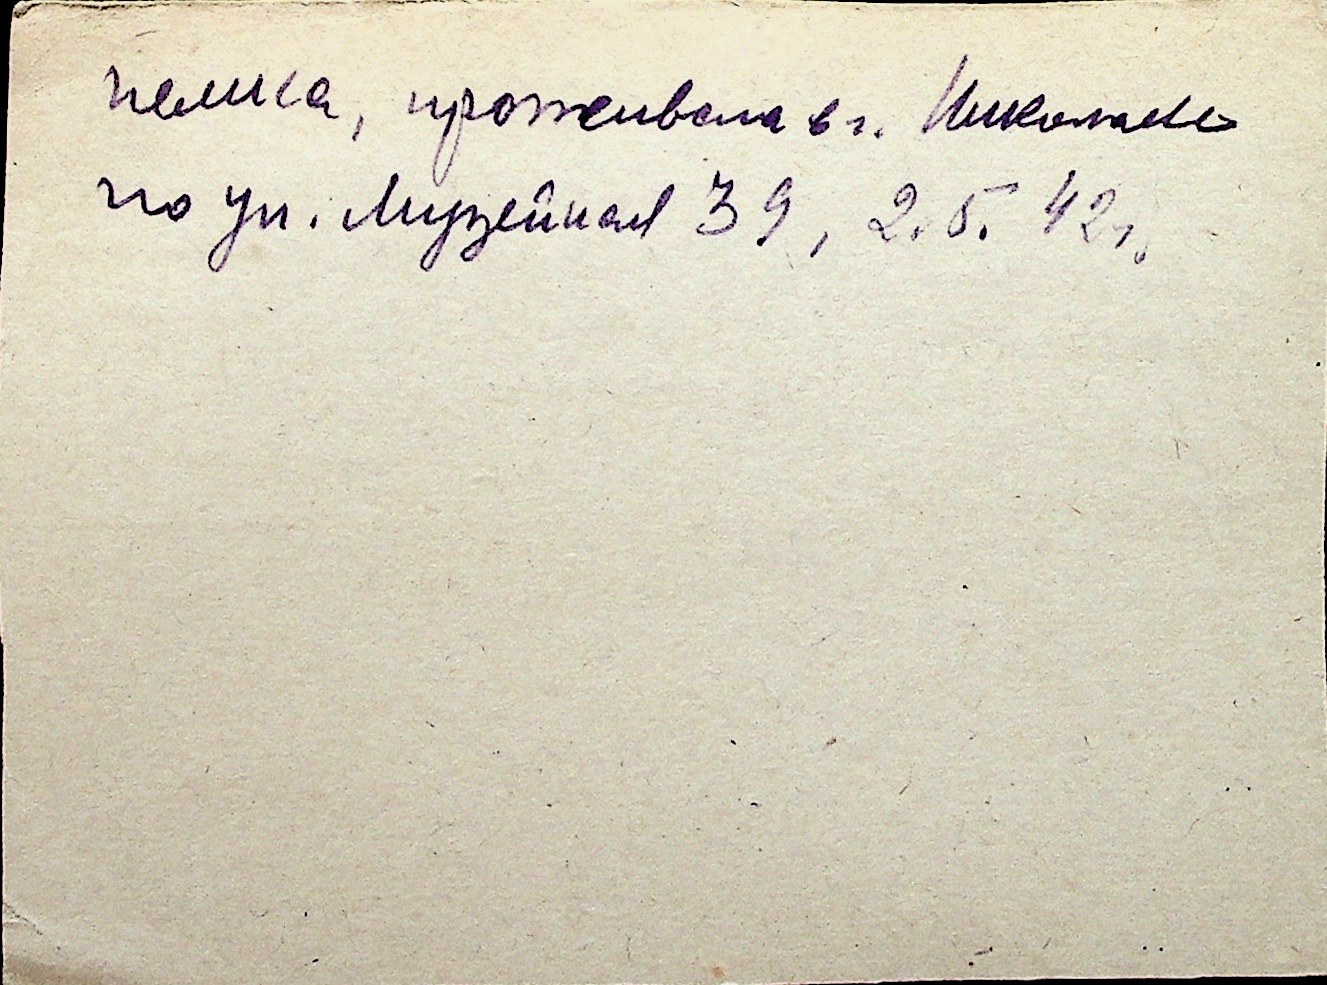 немка, проживала в г. Николаеве
по ул. Музейная 39, 2.5. 42г.